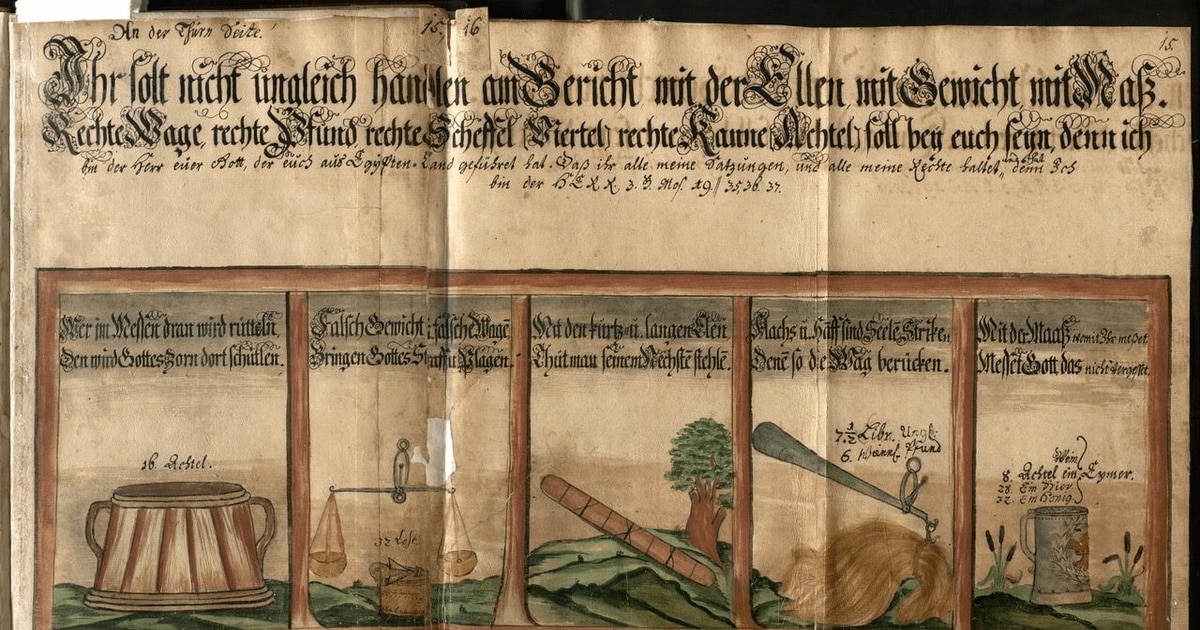 An der Thürn Seite.
15. 16
15.
Ihr solt nicht ungleich handlen am Gericht mit der Ellen mit Gewicht mit Maß.
Rechte Wage, rechte Pfund rechte Scheffel (Viertel) rechte Kanne (Achtel) soll bey euch seyn, denn ich
bin der Herr euer Gott, der euch aus Egypten-Land geführet hat. Daß ihr alle meine Satzungen, und alle meine Rechte haltet, denn Ich
bin der HERR 3. B. Mos. 19. 35, 36. 37.
Wer im Messen dran wird rütteln,
Den wird Gottes Zorn dort schütlen.
Falsch Gewicht, falsche Wage
Bringen Gottes Straff u. Plagen.
Mit den kurtz u. langen Elen
Thüt man seinem Nechste stehle.
Flachs u. Haff sind Seele Strike,
Dene so die Wag verücken.
Mit der Maaß womit Ihr meßet
Messet Gott das nicht vergeßet.
16. Achtel.
7 1/2 Libr. Ung.
6. Pfund
Wein
8. Achtel ein Eymer.
28. Em Bier
32. Em Honig.